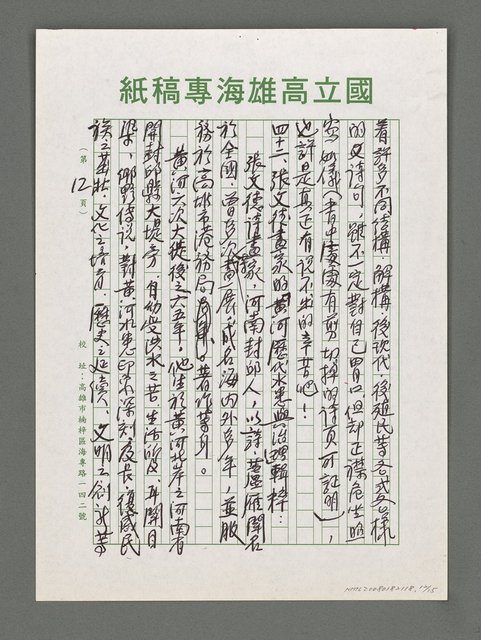 國立高雄海專稿紙
著許多不同結構、解構、後現代、後殖民等各式各樣
的文詩句，雖不一定對自己胃口，但却正襟危坐照
寄如儀（書中處處有剪切掉的詩頁可証明），
也許是真正有說不出的辛苦吧！
四十二、張文德畫家的黃河歷代水患與治理輯粹：
張文德詩畫家，河南封邱人，以詩、蘆雁聞名
於全國，曾多次展成名海內外多年，並服
務於高雄市港務局。著作等身。
黃河六次大徙後之六五年，他生於黃河北岸之河南省
開封邱縣大堤旁，自幼受洪水之苦，生活所及，耳聞目
染，鄉野傳說，對黃河水患印象深刻，及長，復感民
族之茁壯，文化之培育，歷史之延續，文明之創新等
（第12頁）
校址：高雄市楠梓區海專路一四二號
NMTL20080182118, 12/15